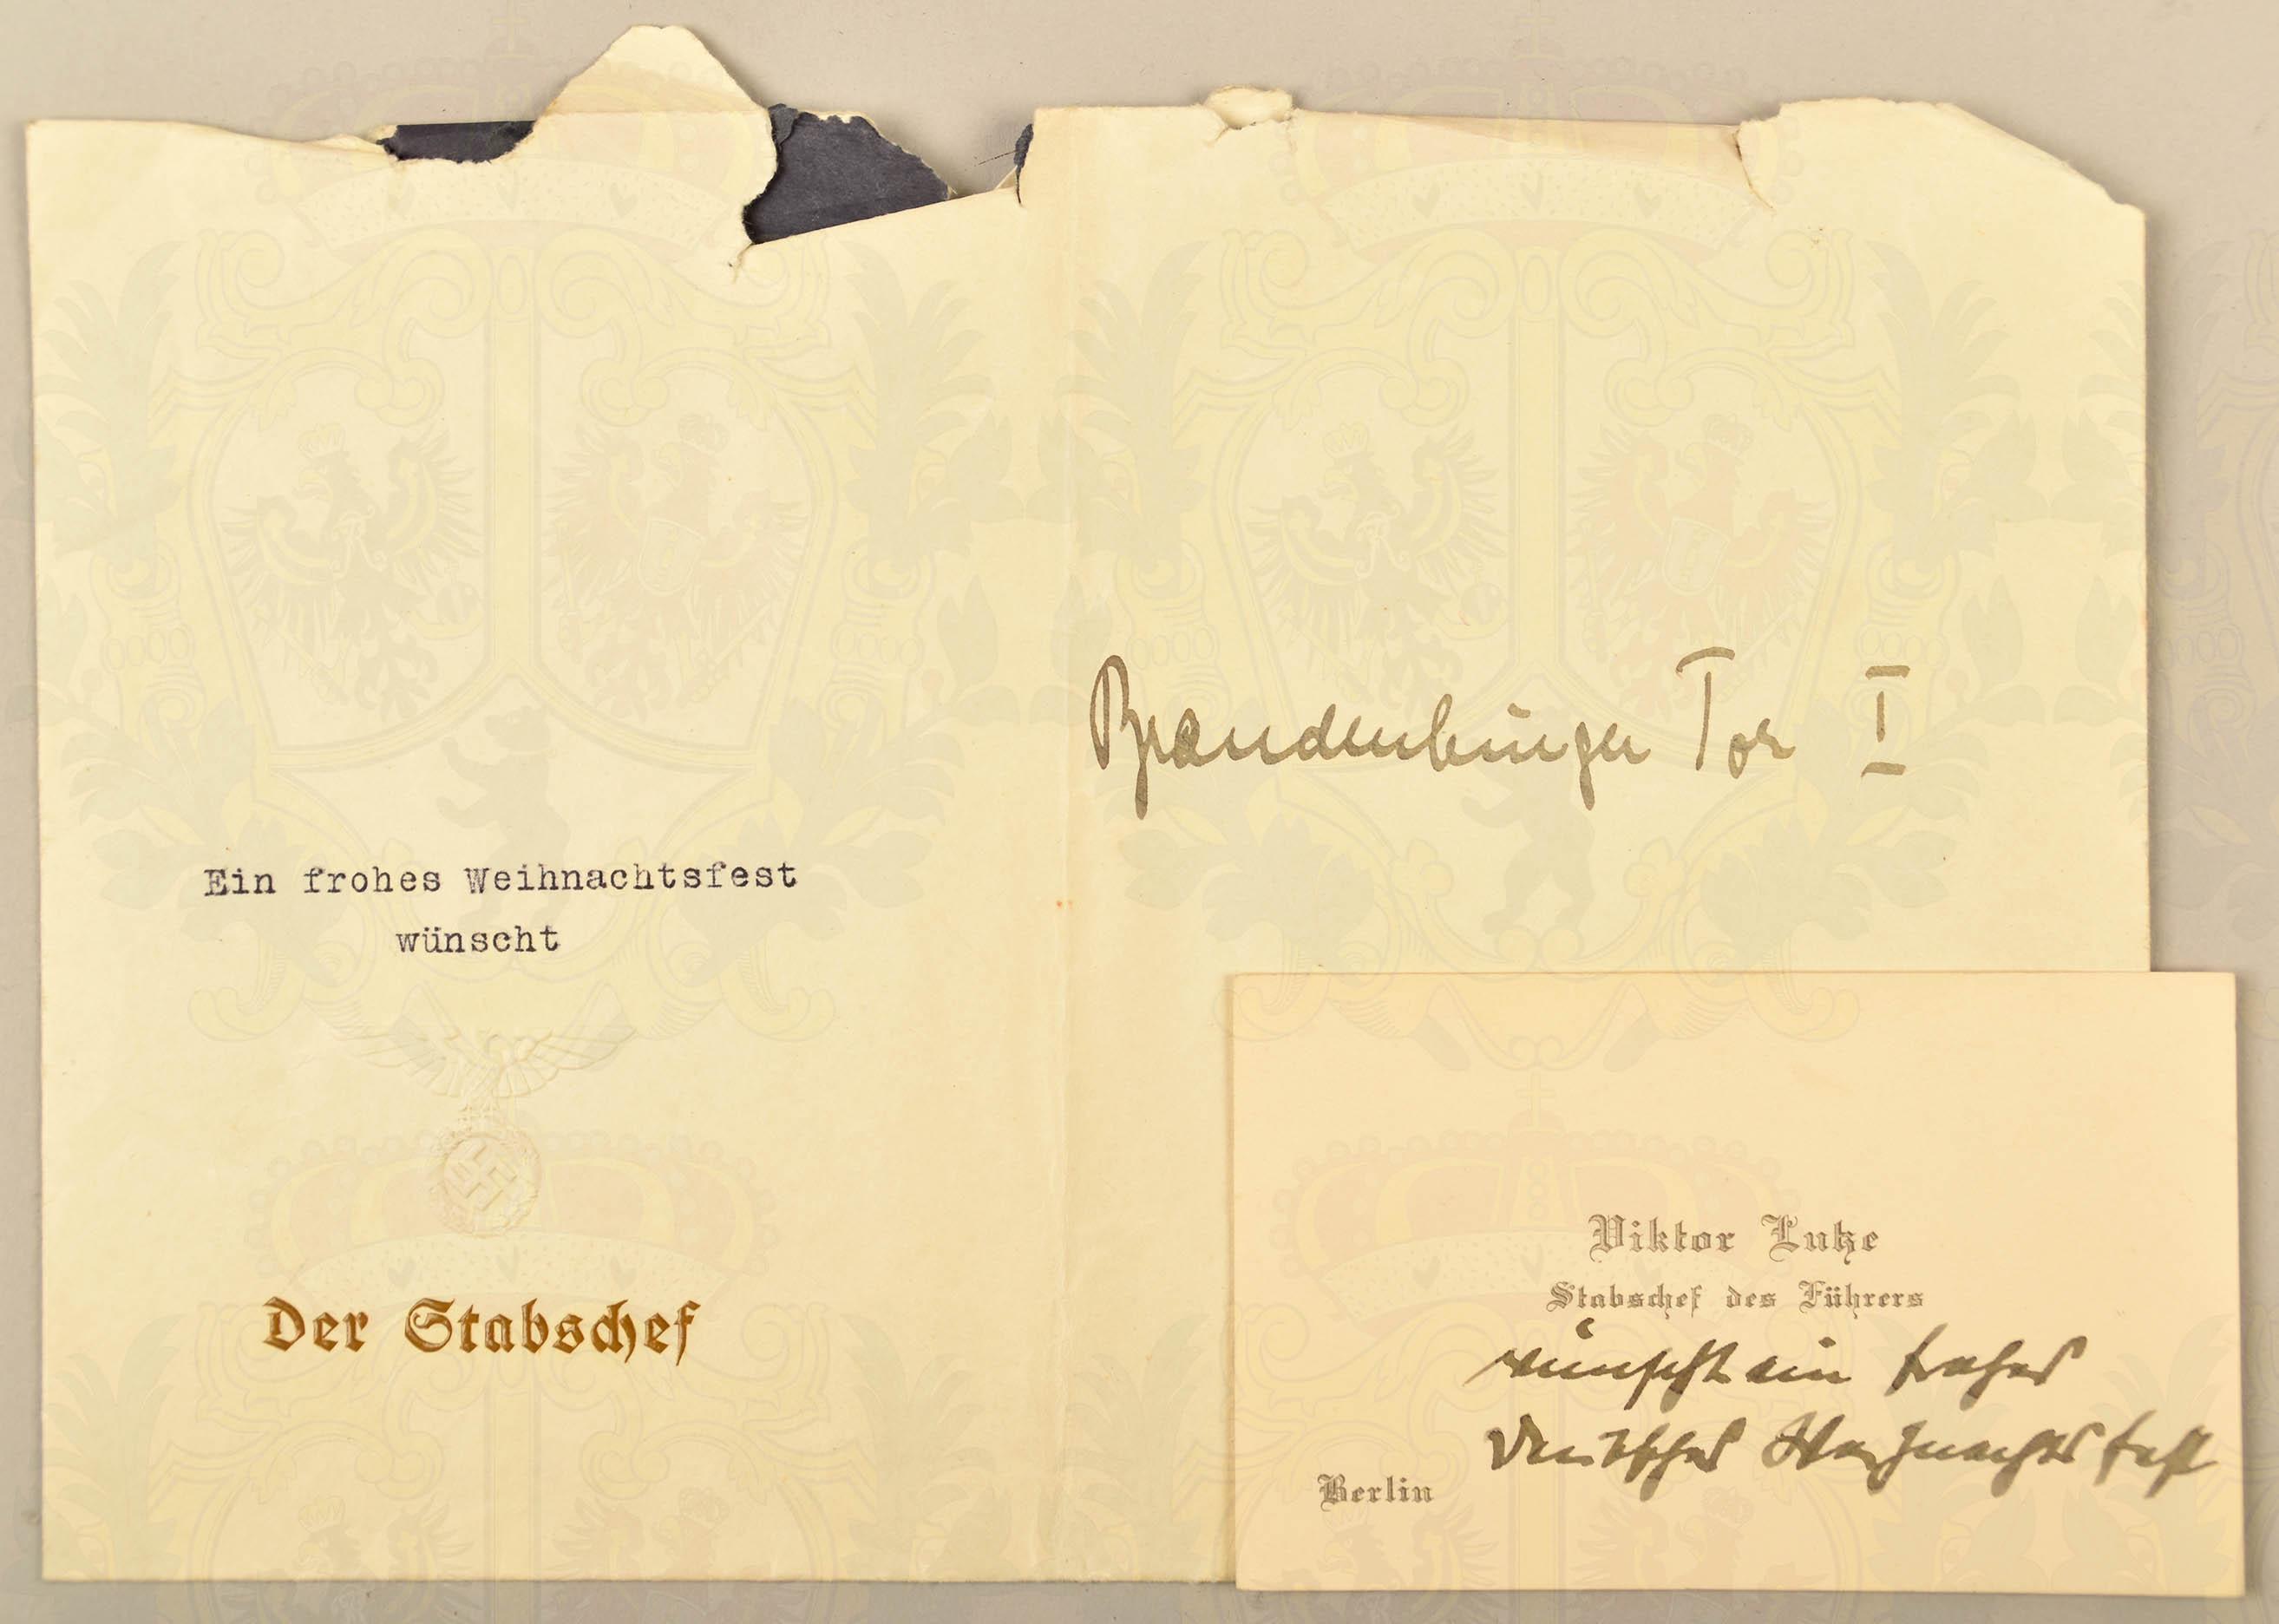 Ein frohes Weihnachtsfest
wünscht
Der Stabschef
Brandenburger Tor I
Viktor Lutze
Stabschef des Führers
wünscht ein frohes
deutsches Weihnachtsfest
Berlin